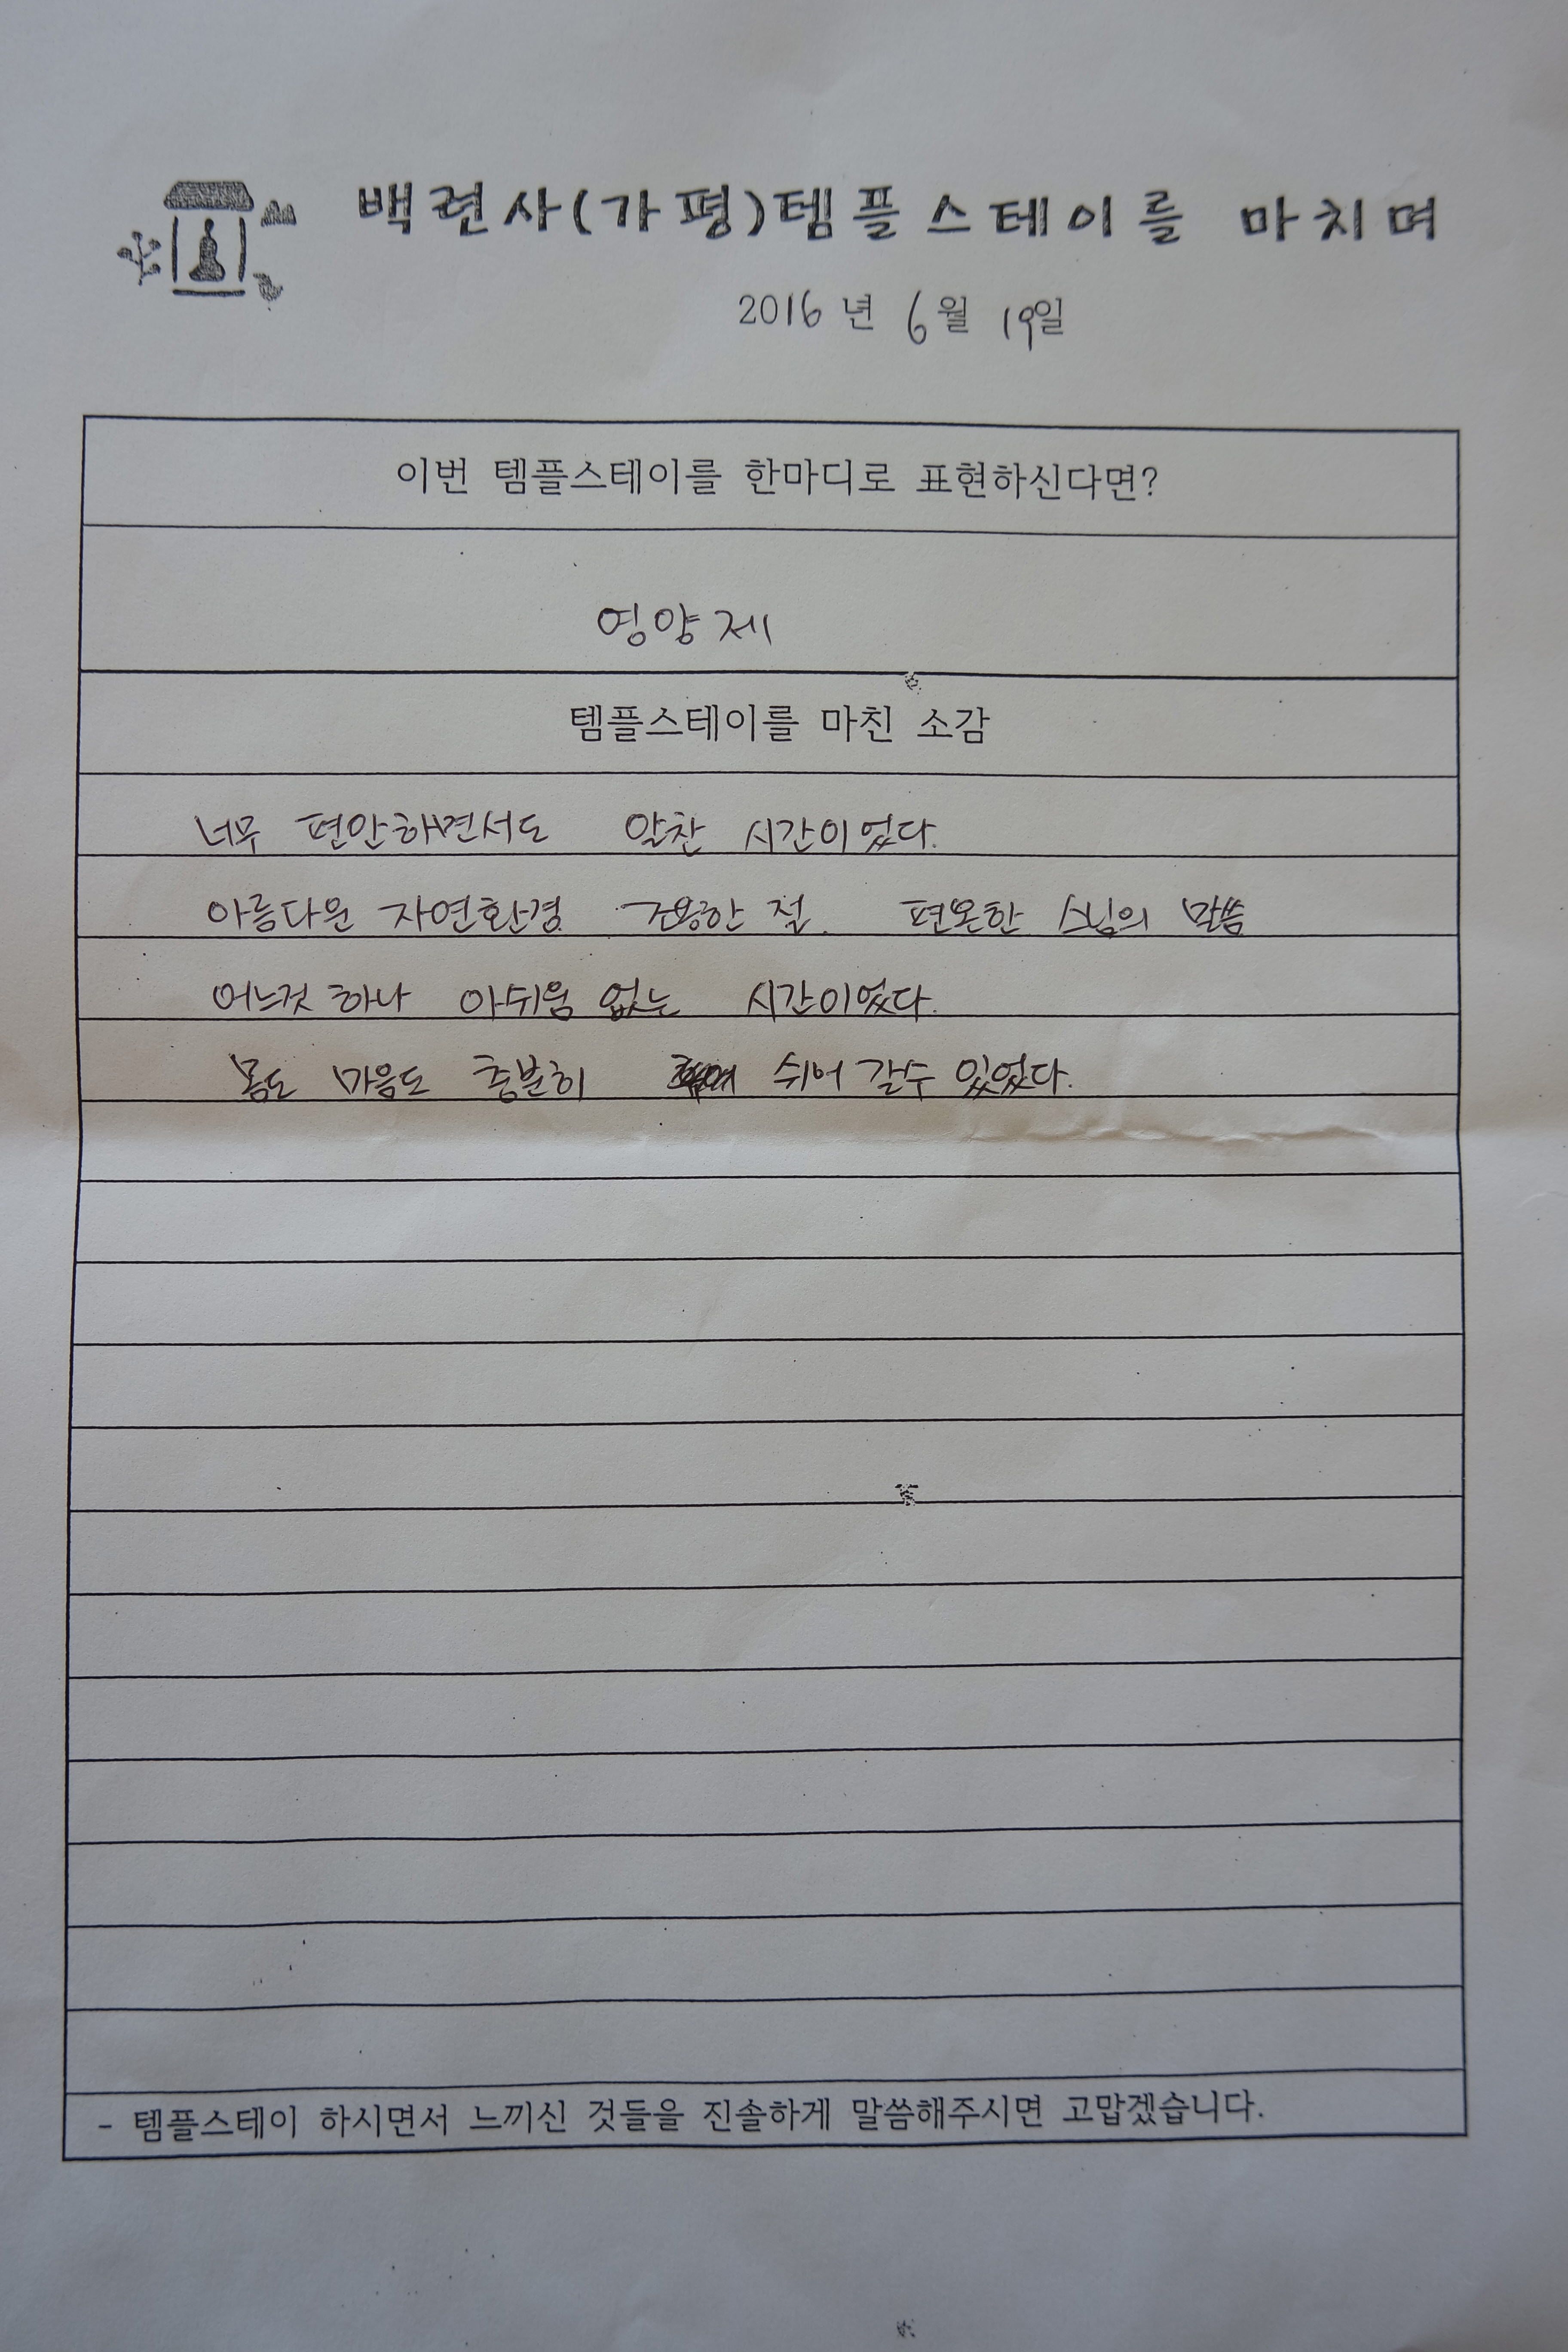 백련사(가평)템플스테이를 마치며
2016년 6월 19일
이번 템플스테이를 한마디로 표현하신다면?
영양제
템플스테이를 마친 소감
너무 편안하면서도 알찬 시간이었다.
아름다운 자연환경 조용한 절. 편온한 스님의 말씀
어느것 하나 아쉬움 없는 시간이었다.
몸도 마음도 충분히 쉬어 갈수 있었다.
- 템플스테이 하시면서 느끼신 것들을 진솔하게 말씀해주시면 고맙겠습니다.